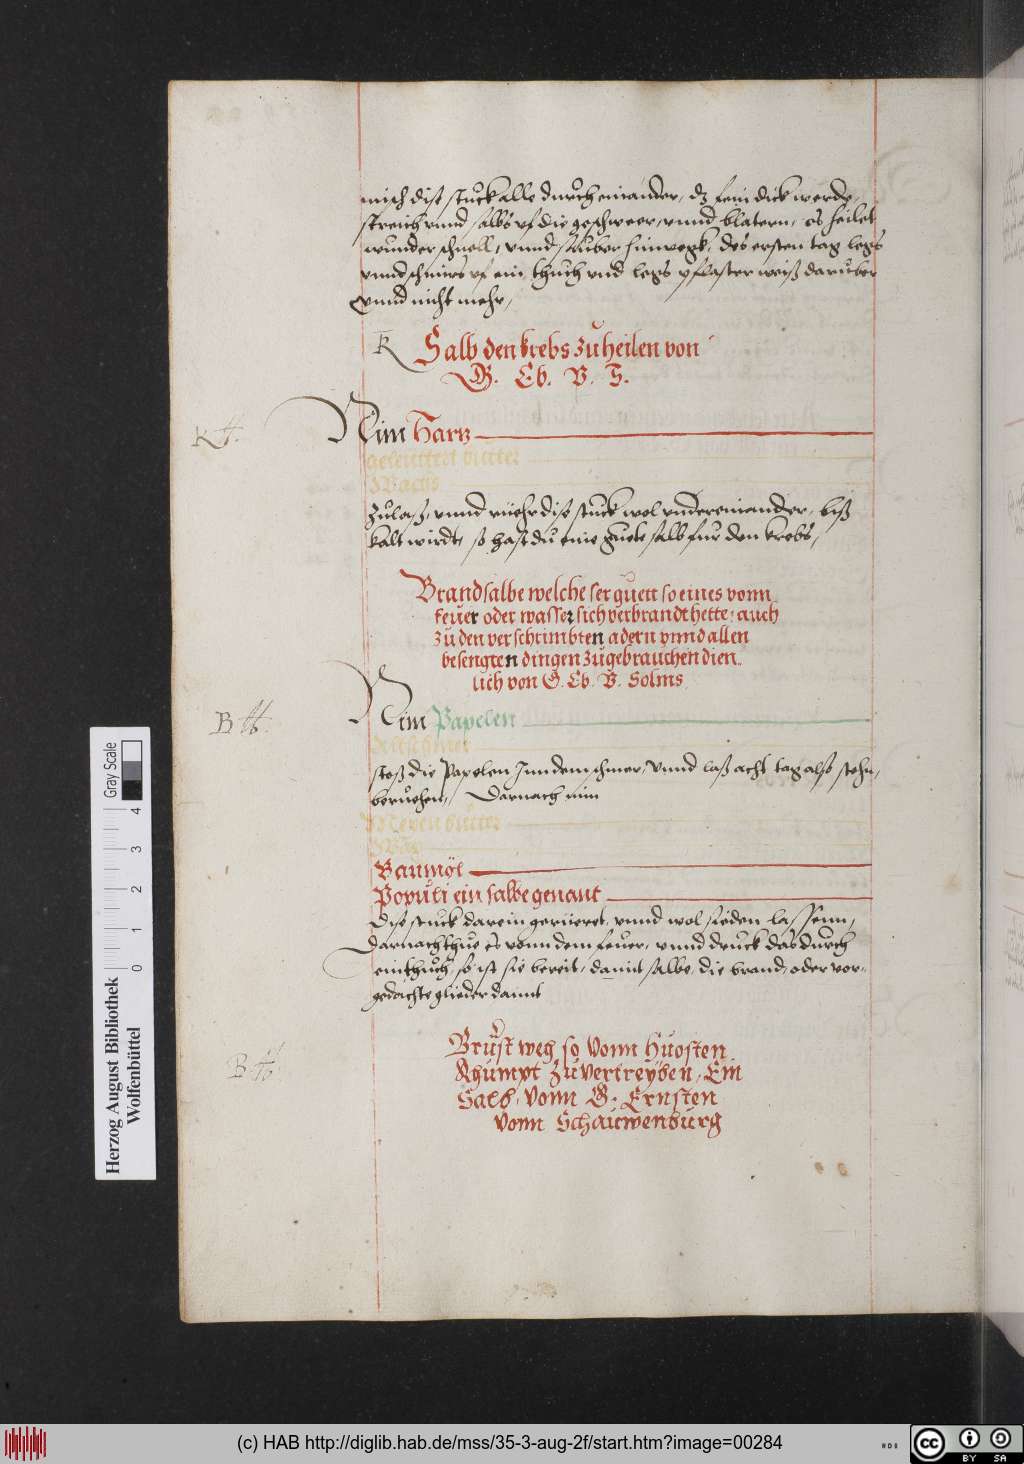 misch diß stuck alle durcheinander, dz fein dick werde,
streich vnnd salbs vf die geschweer, vnnd blatern, es heilet
wunder schnell, vnnd sauber hinwegk, des ersten tag legs
vnnd schmirs vf ein thuch vnd legs pflaster weiß daruber
vnnd nicht mehr,
K Salb den krebs zu heilen von
G. Eb. V. S.
K
Nim Hartz
geleuttert butter
Wachs
Zulaß, vnnd rüehr diße stuck wol vndereinander, biß
kalt wirdt, so hast du eine guete salb fur den krebs,
Brandsalbe welche ser guett so eines vonn
feuer oder wasser sich verbrandt hette: auch
zu den verschrimbten adern vnnd allen
besengten dingen zugebrauchen dien
lich von G. Eb. V. Solms
B
Nim Papelen
Altschmer
stoß die Papelen Inn dem schmer, vnnd laß acht tag also stehn,
beruehen, Darnach nim
Meyen butter
Baumöl
Populi ein salbe genant
Diße stuck darein gerüeret, vnnd wol sieden lassenn,
darnach thue es vonn dem feuer, vnnd druck das durch
ein thuch, so ist sie bereit, damit salbe, die brand, oder vor-
gedachte glieder damit
B
Brust weh so vonn Huosten
Rhumpt zu vertreyben, Ein
Salb, vonn G. Ernsten
vonn Schauwenburg
Herzog August Bibliothek
Wolfenbüttel
0 1 2 3 4
Gray Scale
(c) HAB http://diglib.hab.de/mss/35-3-aug-2f/start.htm?image=00284
cc BY SA